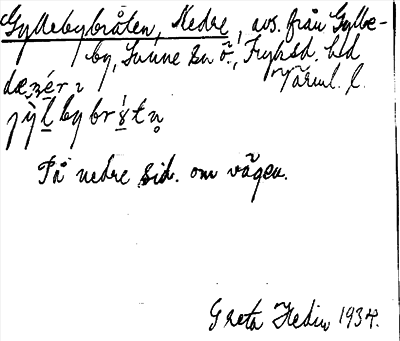 Gyllebybråten, Nedre, avs. från Gylle-
by, Ö. Fryksd. hd
Värml. l.
På nedre sid. om vägen.
Greta Hedin 1934.